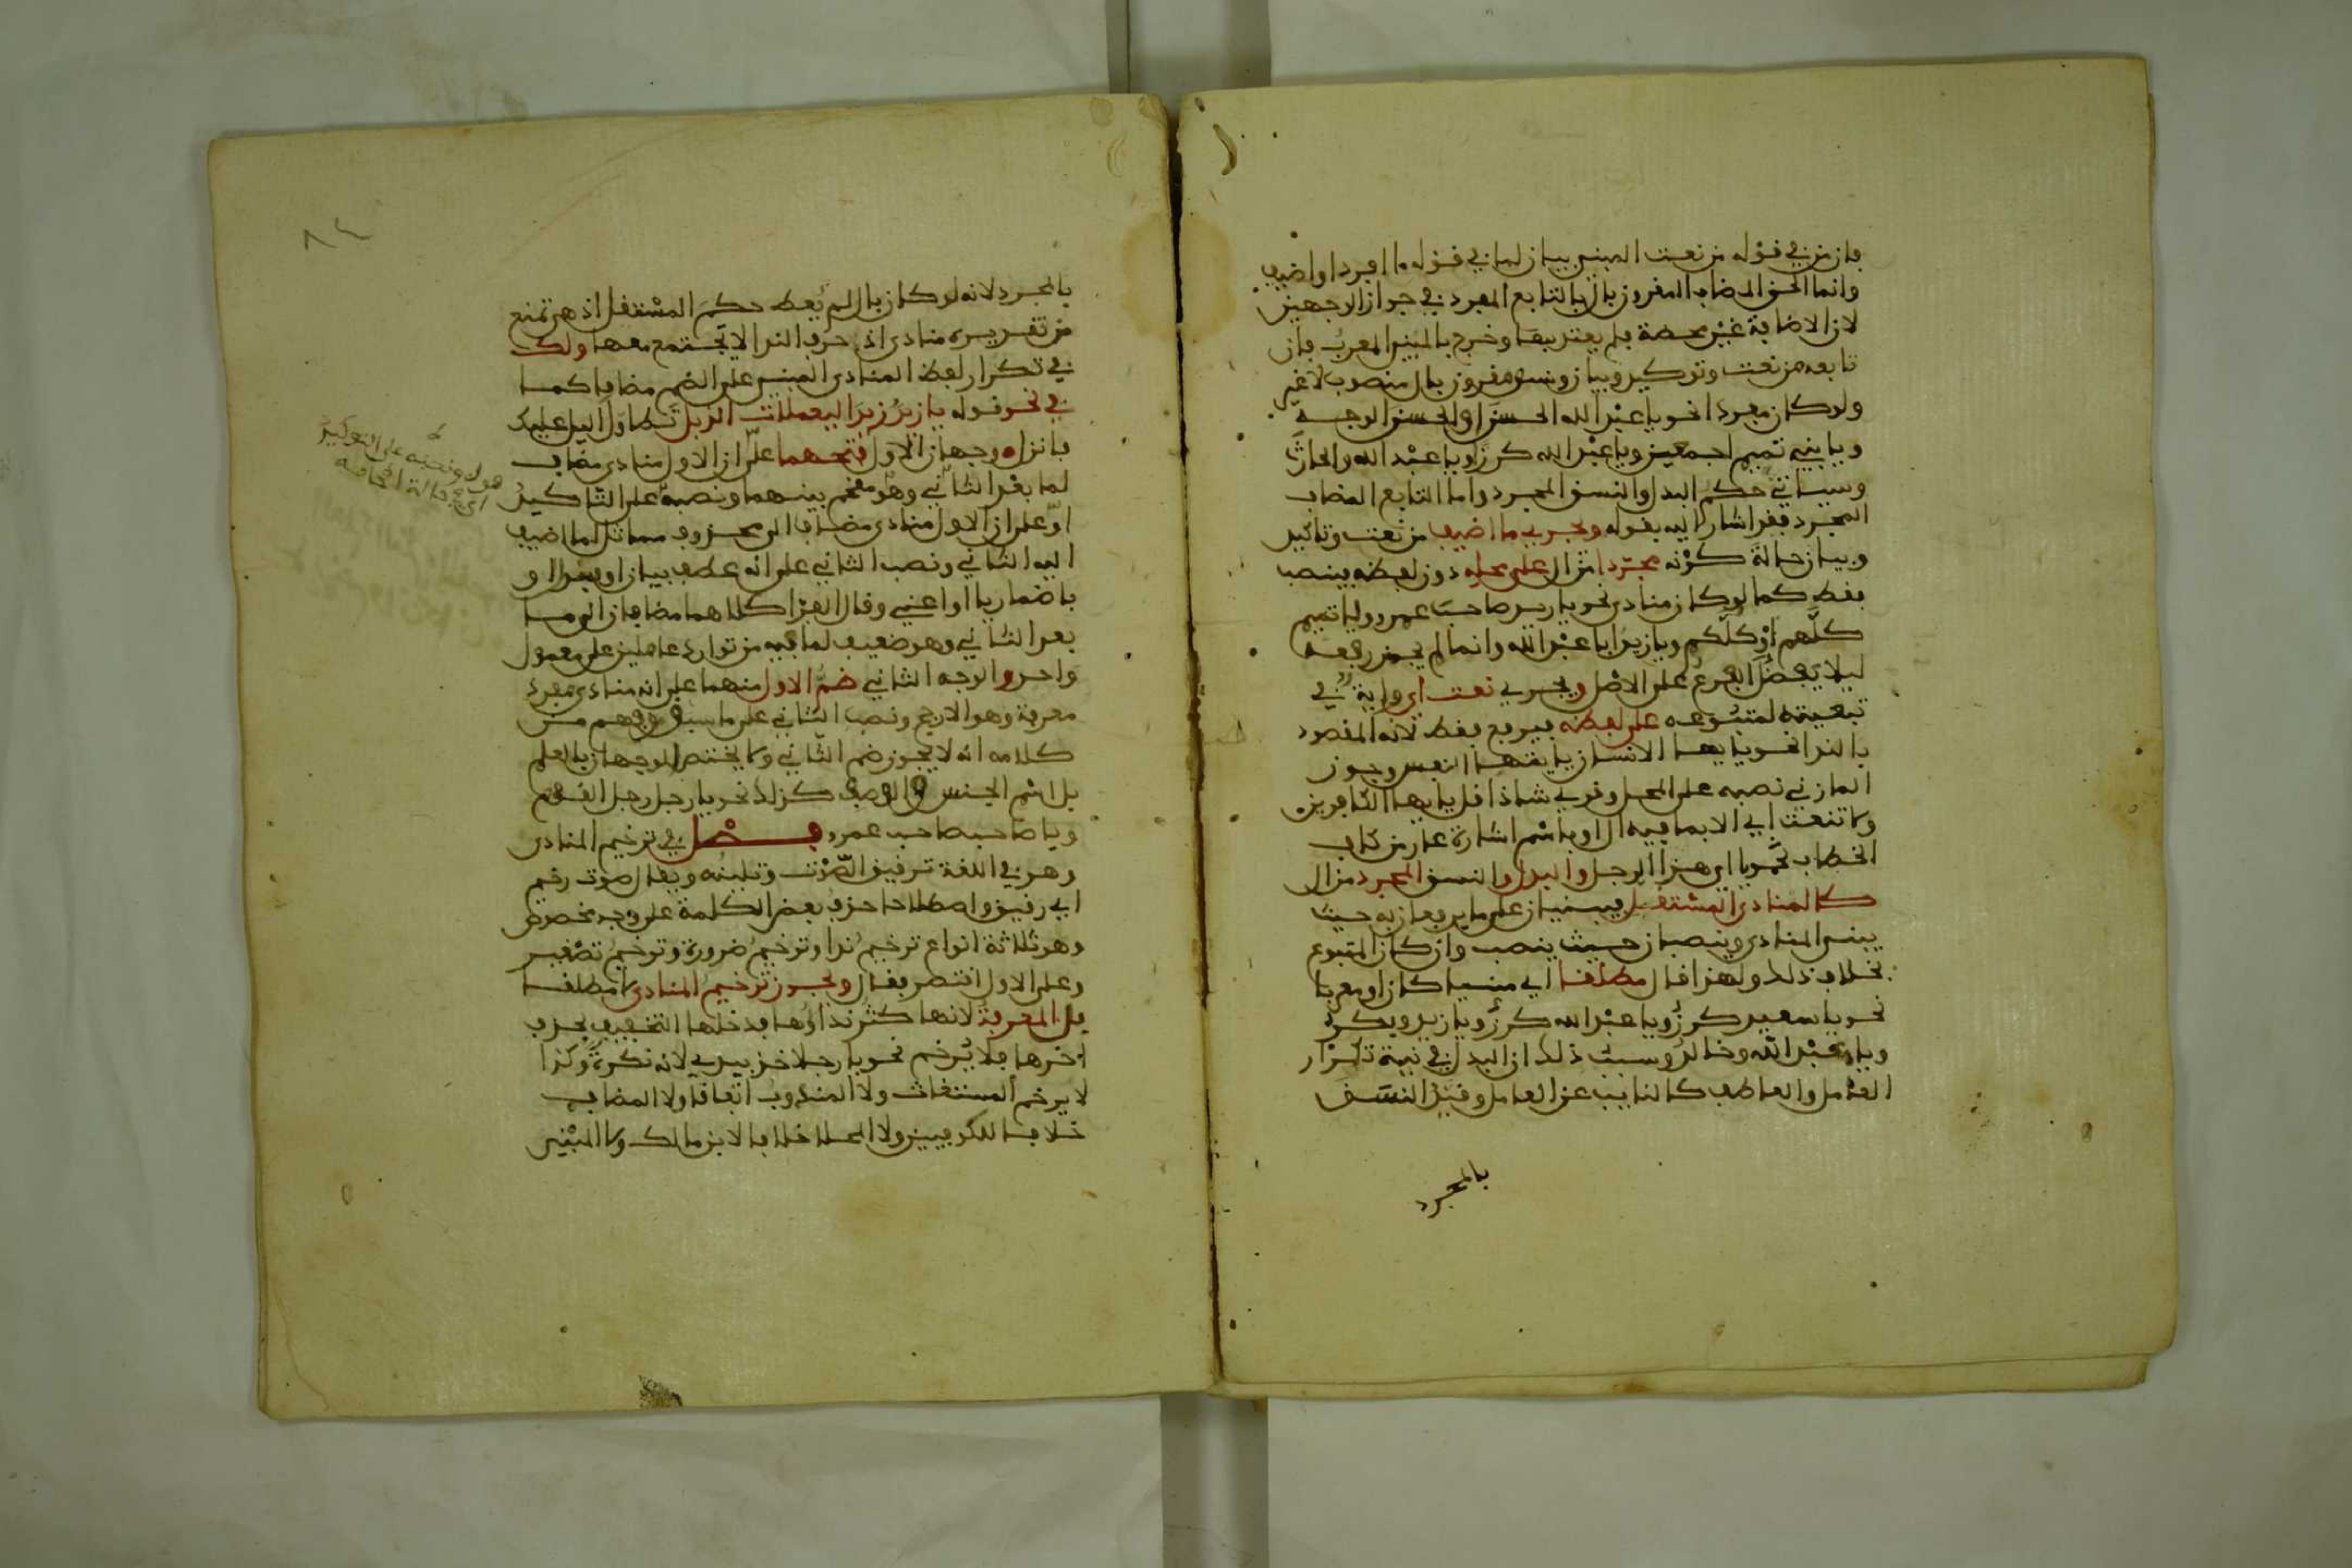 فان من في قوله من نعت المبني بيان لما في قوله ما افرد او اضيف
وانما الحق المضاف المقرون بال بالتابع المفرد في جواز الوجهين
لان الاضافة غير محضة فلم يعتد بها وخرج بالمبني المعرب فان
تابعه من نعت وتوكيد وبيان ونسق مقرون بال منصوب لا غير
ولو كان مفردا نحو يا عبد الله الحسن او الحسن الوجه
ويا بني تميم اجمعين ويا عبد الله كرزا ويا عبد الله والحارث
وسياتي حكم البدل والنسق المجرد واما التابع المضاف
المجرد فقد اشار اليه بقوله ويجري ما اضيف من نعت وتاكيد
وبيان حالة كونه مجردا من ال على محله دون لفظه فينصب
فقط كما لو كان منادى نحو يا زيد صاحب عمرو ويا تميم
كلهم او كلكم ويا زيد ابا عبد الله وانما لم يجز رفعه
ليلا يفضل الفرع على الاصل ويجري نعت اي واية في
تبعيته لمتبوعه على لفظه فيرفع فقط لانه المقصود
بالندا نحو يا يها الانسان يا يتها النفس وجوز
المازني نصبه على المحل وقري شاذا قل يا يها الكافرين
ولا تنعت اي الا بما فيه ال او باسم اشارة عار من كاف
الخطاب نحو يا اي هذا الرجل والبدل والنسق المجرد من ال
كالمنادى المستقل فيبنيان على ما يرفعان به حيث
يبنى المنادى وينصبان حيث ينصب وان كان المتبوع
بخلاف ذلك ولهذا قال مطلقا اي مبنيا كان او معربا
نحو يا سعيد كرز ويا عبد الله كرز ويا زيد وبكر
ويا عبد الله وخالد وسبب ذلك ان البدل في نية تكرار
العامل والعاطف كالنايب عن العامل وقيد النسق
بالمجرد
بالمجرد لانه لو كان بال لم يعط حكم المستقل اذ هي تمنع
من تقديره منادى اذ حرف الندا لا يجتمع معها ولك
في تكرار لفظ المنادى المبني على الضم مضافا كما
في نحو قوله يا زيد زيد اليعملات الذبل تطاول الليل عليك
فانزل وجهان الاول فتحهما على ان الاول منادى مضاف
لما بعد الثاني وهو مقحم بينهما ونصبه على التاكيد
او على ان الاول منادى مضاف الى محذوف مماثل لما اضيف
اليه الثاني ونصب الثاني على انه عطف بيان او بدل او
باضمار يا او اعني وقال الفرا كلاهما مضافان الى ما
بعد الثاني وهو ضعيف لما فيه من توارد عاملين على معمول
واحد والوجه الثاني ضم الاول منهما على انه منادى مفرد
معرفة وهو الارجح ونصب الثاني على ما سبق وفهم من
كلامه انه لا يجوز ضم الثاني ولا يختص الوجهان بالعلم
بل اسم الجنس والوصف كذلك نحو يا رجل رجل القوم
ويا صاحب صاحب عمرو فصل في ترخيم المنادى
وهو في اللغة ترقيق الصوت وتليينه ويقال صوت رخيم
اي رقيق واصطلاحا حذف بعض الكلمة على وجه مخصوص
وهو ثلاثة انواع ترخيم ندا وترخيم ضرورة وترخيم تصغير
وعلى الاول اقتصر فقال ويجوز ترخيم المنادى لا مطلقا
بل المعرفة لانها كثر نداؤها فدخلها التخفيف بحذف
اخرها فلا يرخم نحو يا رجلا خذ بيدي لانه نكرة وكذا
لا يرخم المستغاث ولا المندوب اتفاقا ولا المضاف
خلافا للكوفيين ولا المحلا خلافا لابن مالك ولا المبني
قوله ونصبه على التوكيد